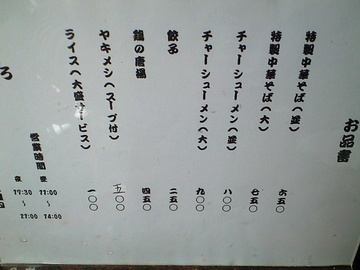 お品書
特製中華そば(並) 六五〇
特製中華そば(大) 七五〇
チャーシューメン(並) 八〇〇
チャーシューメン(大) 九〇〇
餃子 二五〇
鶏の唐揚 四五〇
ヤキメシ(スープ付) 五〇〇
ライス(大盛サービス) 一〇〇
営業時間
昼 11:00～14:00
夜 17:30～21:00
ろ